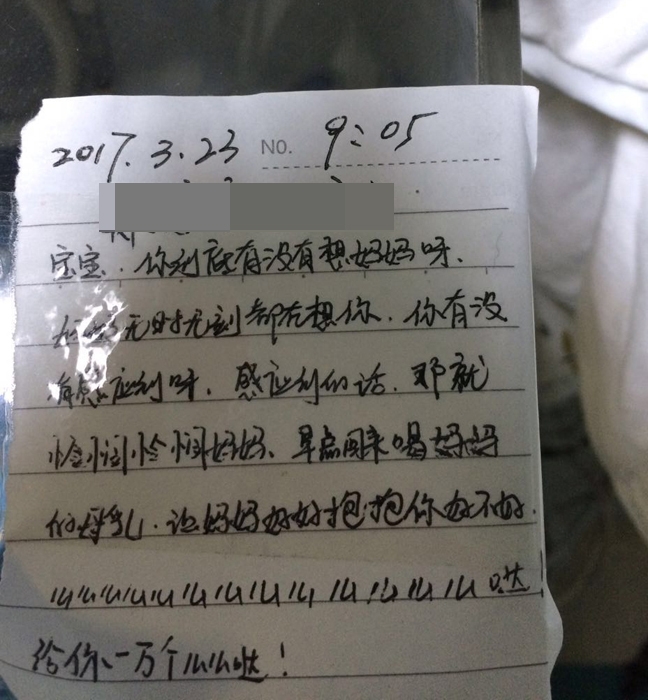 2017.3.23 NO. 9:05
宝宝.你到底有没有想妈妈呀.
妈妈无时无刻都在想你.你有没
有感应到呀.感应到的话.那就
怜悯怜悯妈妈、早点回来喝妈妈
的母乳.让妈妈好好抱抱你好不好.
么么么么么么么么么么么么么么哒
给你一万个么么哒!